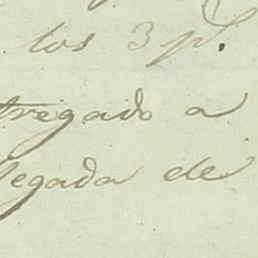 los 3 p.
tregado a
legada de